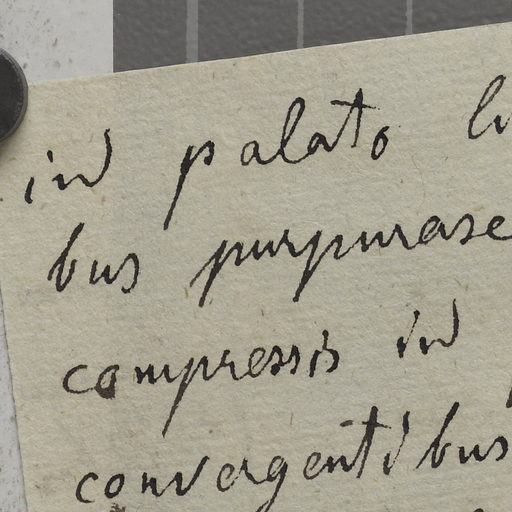 in palato
bus purpurase
compressis in
convergentibus